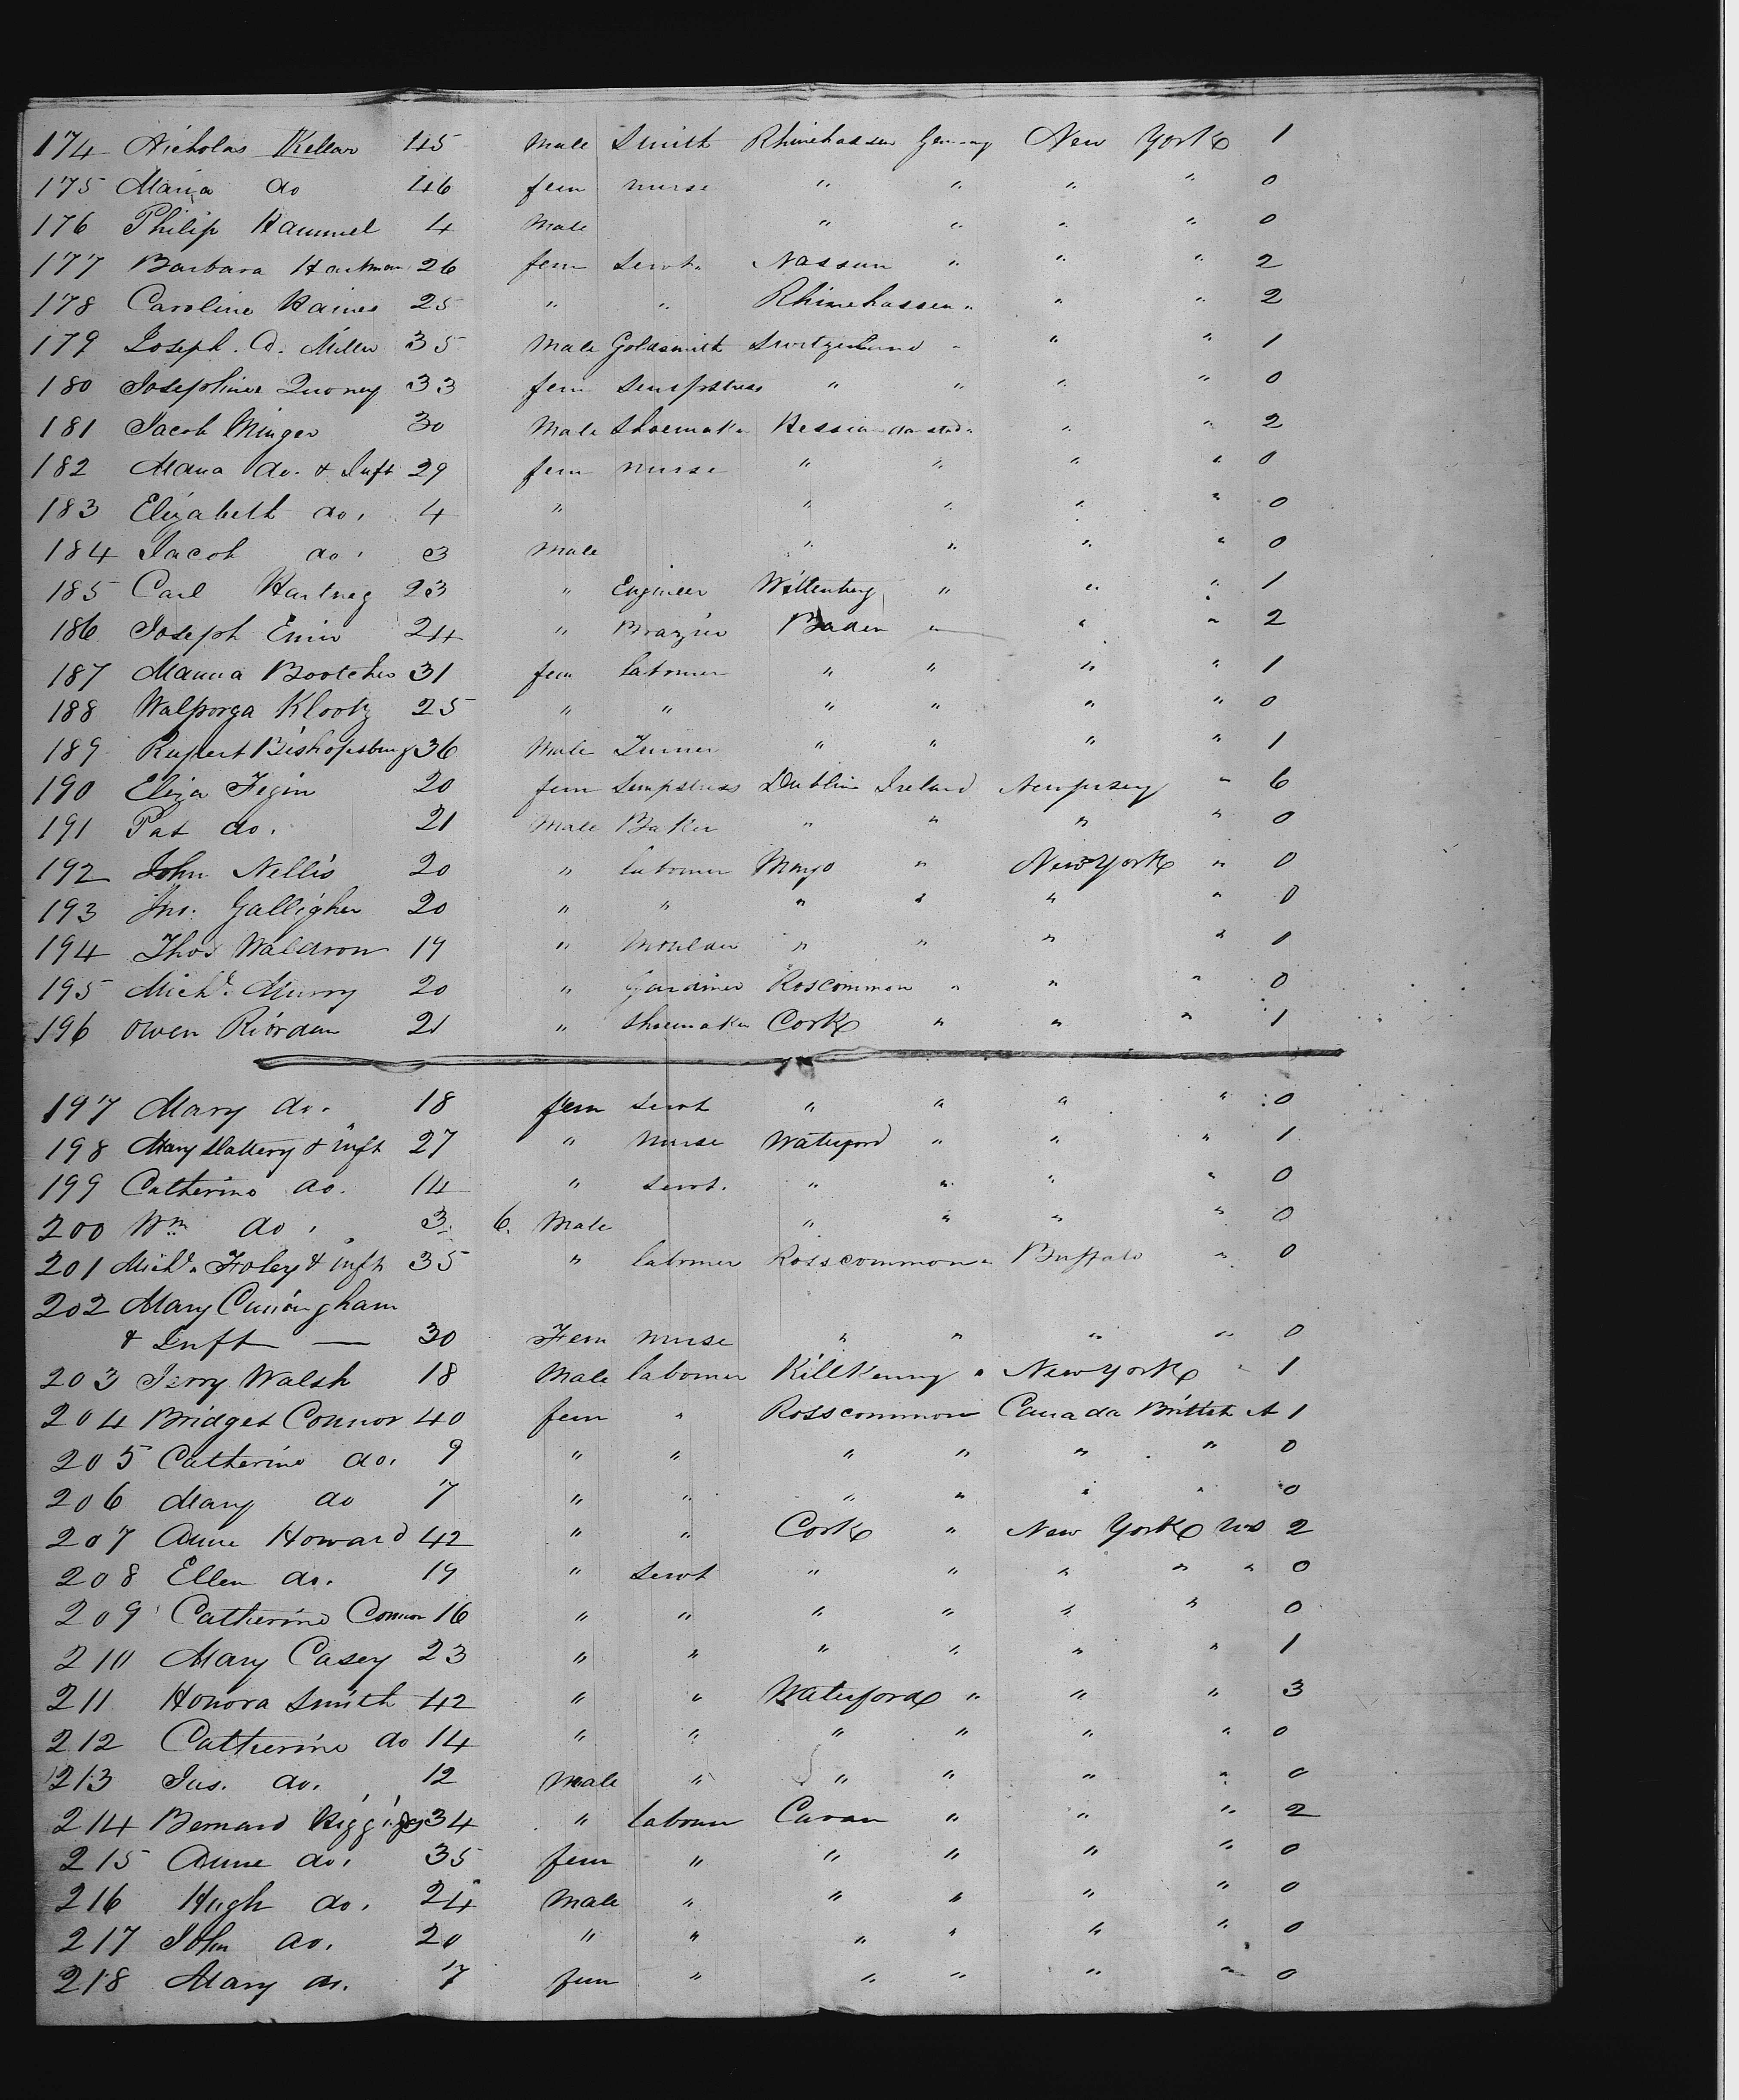 174 Nicholas Kellar 45 Male Smith Rhinehassen Germany New York 1
175 Maria do 46 fem nurse " " " " 0
176 Philip Hammel 4 Male " " " " 0
177 Barbara Hartman 26 fem Servt. Nassau " " " 2
178 Caroline Haines 25 " " Rhinehassen " " " 2
179 Joseph. A. Miller 35 Male Goldsmith Switzerland " " " 1
180 Josephine 33 fem Sempstress " " " " 0
181 Jacob Minger 30 Male Shoemaker Hessia " " " 2
182 Maria do. & Inft 29 fem nurse " " " " 0
183 Elizabeth do. 4 " " " " " 0
184 Jacob do. 3 Male " " " " 0
185 Carl 23 " Engineer Wittenberg " " " 1
186 Joseph 24 " Brazier Baden " " " 2
187 31 fem labourer " " " " 1
188 Walporga Klootz 25 " " " " " " 0
189 Rupert Bishopsburg 36 Male Turner " " " " 1
190 Eliza Fegin 20 fem Sempstress Dublin Ireland New jersey " 6
191 Pat do. 21 Male Baker " " " " 0
192 John Nellis 20 " labourer Mayo " New York " 0
193 Jno. Galligher 20 " " " " " " 0
194 Thos Waldron 19 " Moulder " " " " 1
195 Michl. Murry 20 " Gardiner Roscommon " " " 0
196 Owen Riordan 21 " Shoemaker Cork " " " 1
197 Mary do. 18 fem Servt " " " " 0
198 Mary Slattery & inft 27 " Nurse Waterford " " " 1
199 Catherine do. 14 " Servt. " " " " 0
200 Wm do. 3. 6. Male " " " " 0
201 Michl. Foley & inft 35 " labourer Rosscommon " Buffalo " 0
202 Mary Cuningham
& Inft — 30 Fem nurse " " " " 0
203 Jerry Walsh 18 Male labourer Killkenny " New York " 1
204 Bridget Connor 40 fem " Rosscommon Canada Brittish A 1
205 Catherine do. 9 " " " " " " 0
206 Mary do 7 " " " " " " 0
207 Anne Howard 42 " " Cork " New York US 2
208 Ellen do. 19 " Servt " " " " " 0
209 Catherine Connor 16 " " " " " " 0
210 Mary Casey 23 " " " " " " 1
211 Honora Smith 42 " " Waterford " " " 3
212 Catherine do 14 " " " " " " 0
213 Jas. do. 12 Male " " " " " 0
214 Bernard 34 " labourer Cavan " " " 2
215 Anne do. 35 fem " " " " " 0
216 Hugh do. 24 Male " " " " " 0
217 John do. 20 " " " " " " 0
218 Mary do. 7 fem " " " " " 0